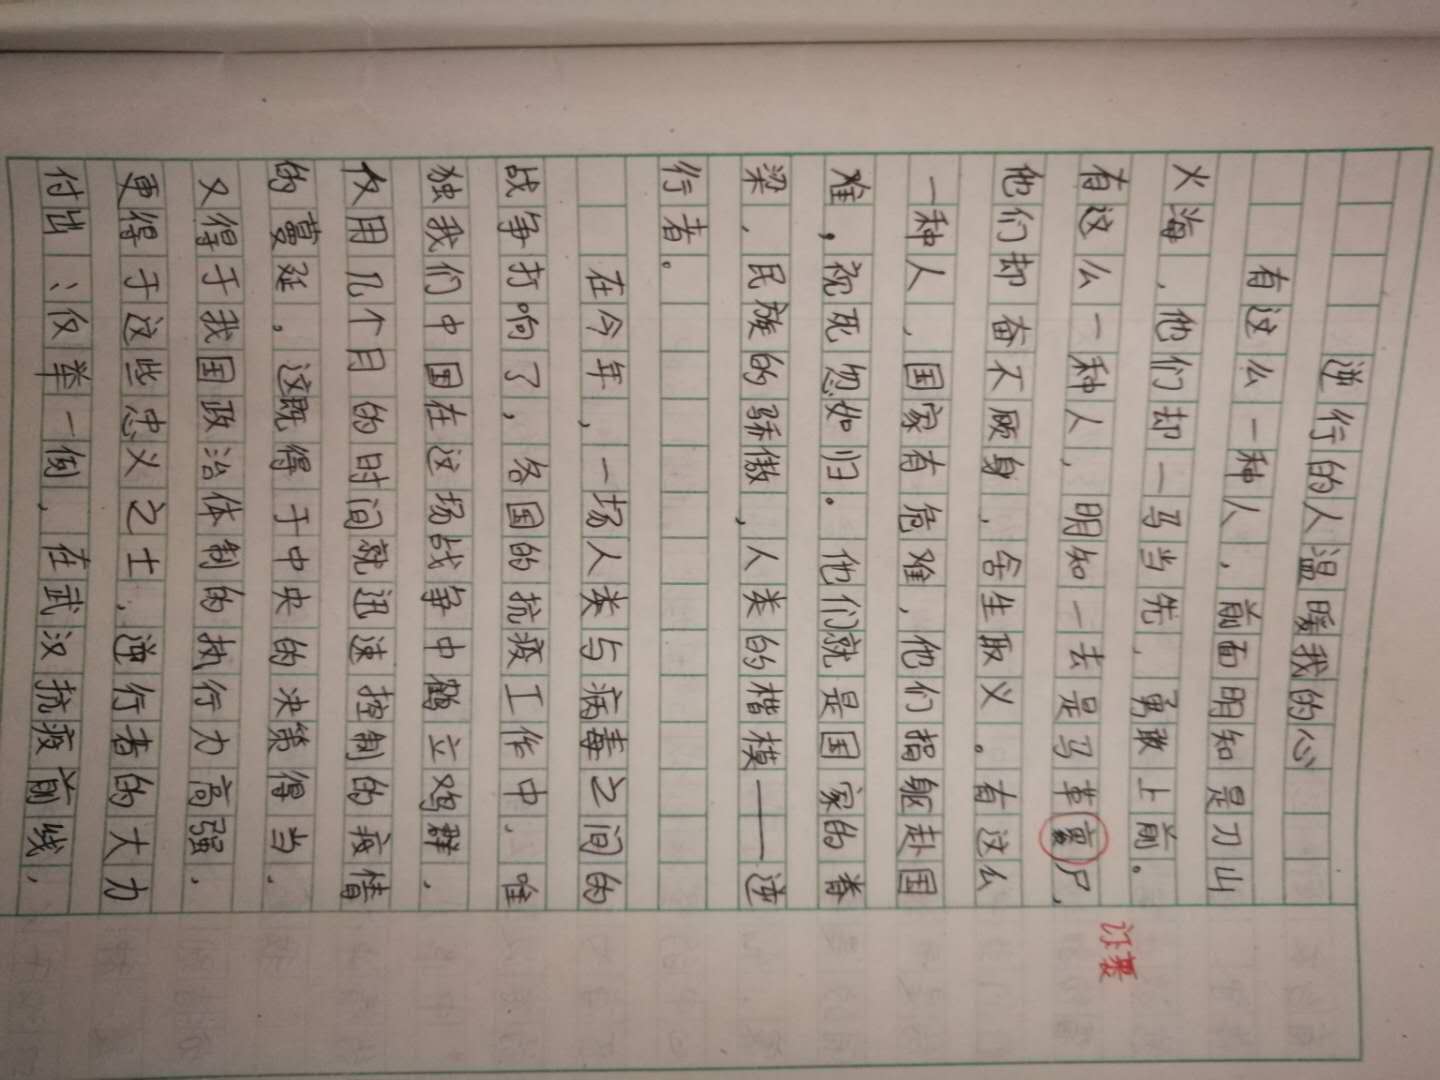 逆行的人温暖我的心
有这么一种人，前面明知是刀山
火海，他们却一马当先，勇敢上前。
有这么一种人，明知一去是马革裹尸，
他们却奋不顾身，舍生取义。有这么
一种人，国家有危难，他们捐躯赴国
难，视死忽如归。他们就是国家的脊
梁，民族的骄傲，人类的楷模——逆
行者。
在今年，一场人类与病毒之间的
战争打响了，各国的抗疫工作中，唯
独我们中国在这场战争中鹤立鸡群，
仅用几个月的时间就迅速控制的疫情
的蔓延，这既得于中央的决策得当，
又得于我国政治体制的执行力高强，
更得于这些忠义之士，逆行者的大力
付出：仅举一例，在武汉抗疫前线，
裹